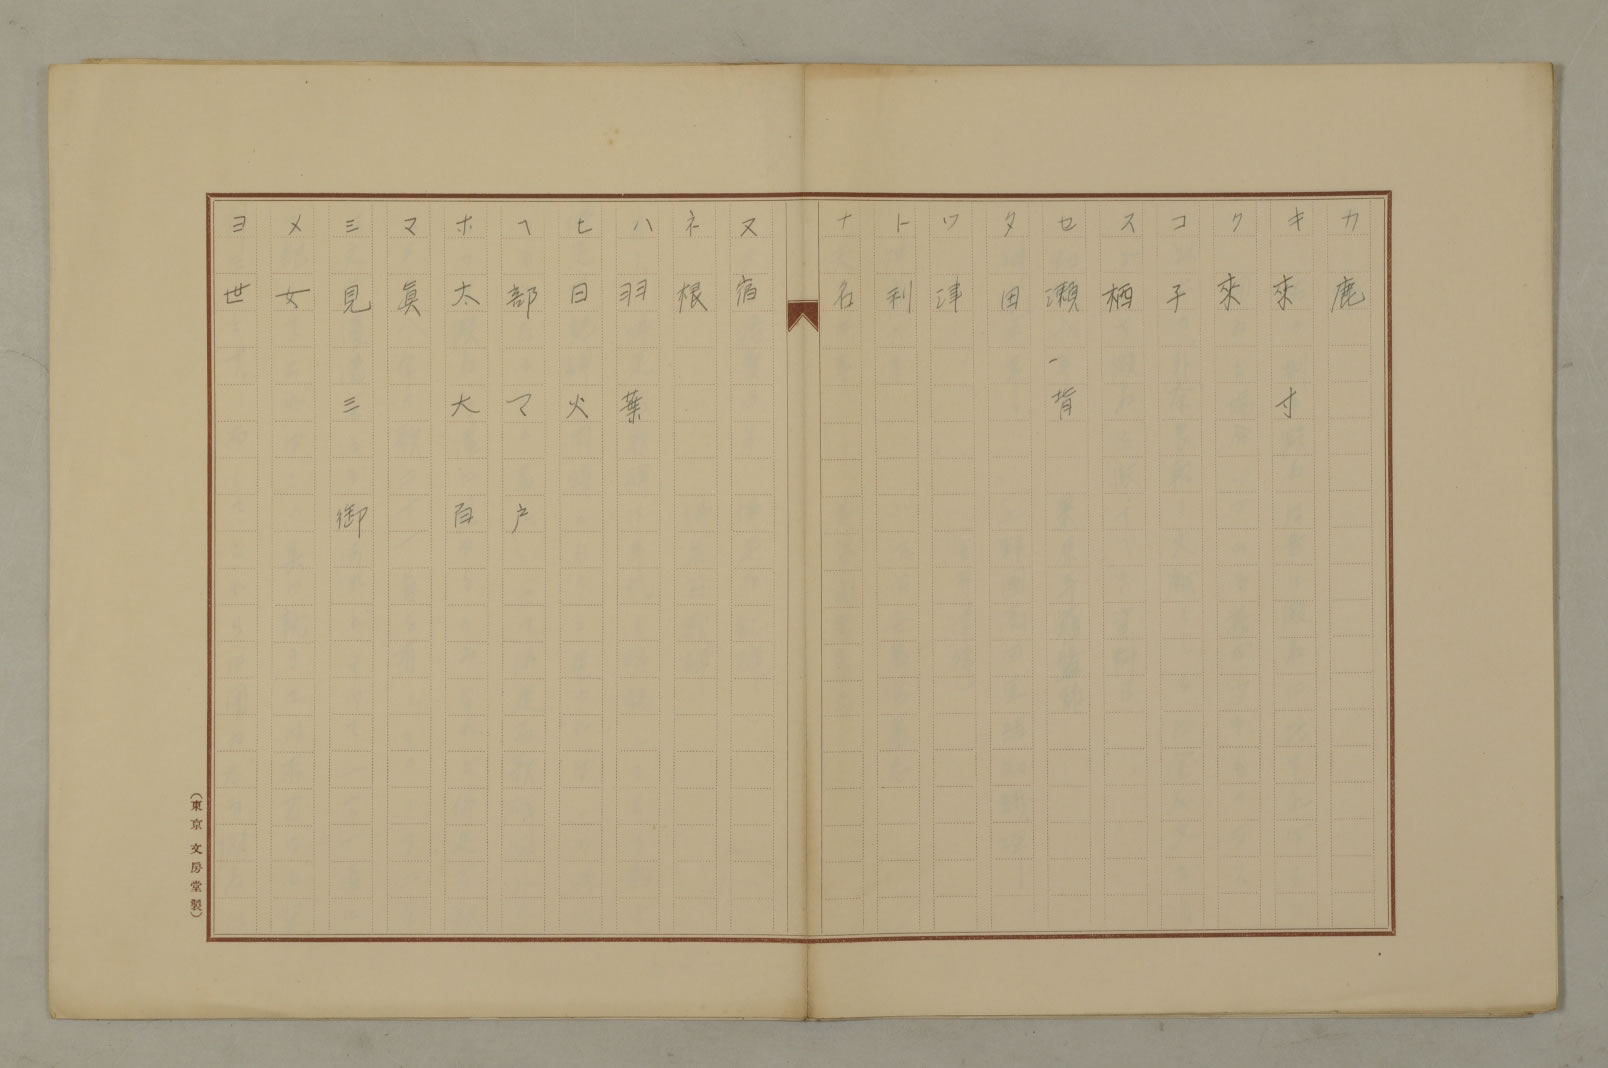 カ 鹿
キ 來 寸
ク 來
コ 子
ス 栖
セ 瀬 背
タ 田
ツ 津
ト 利
ナ 名
ヌ 宿
ネ 根
ハ 羽 葉
ヒ 日 火
ヘ 部 マ 戸
ホ 太 大 百
マ 眞
ミ 見 三 御
メ 女
ヨ 世
(東京 文房堂製)